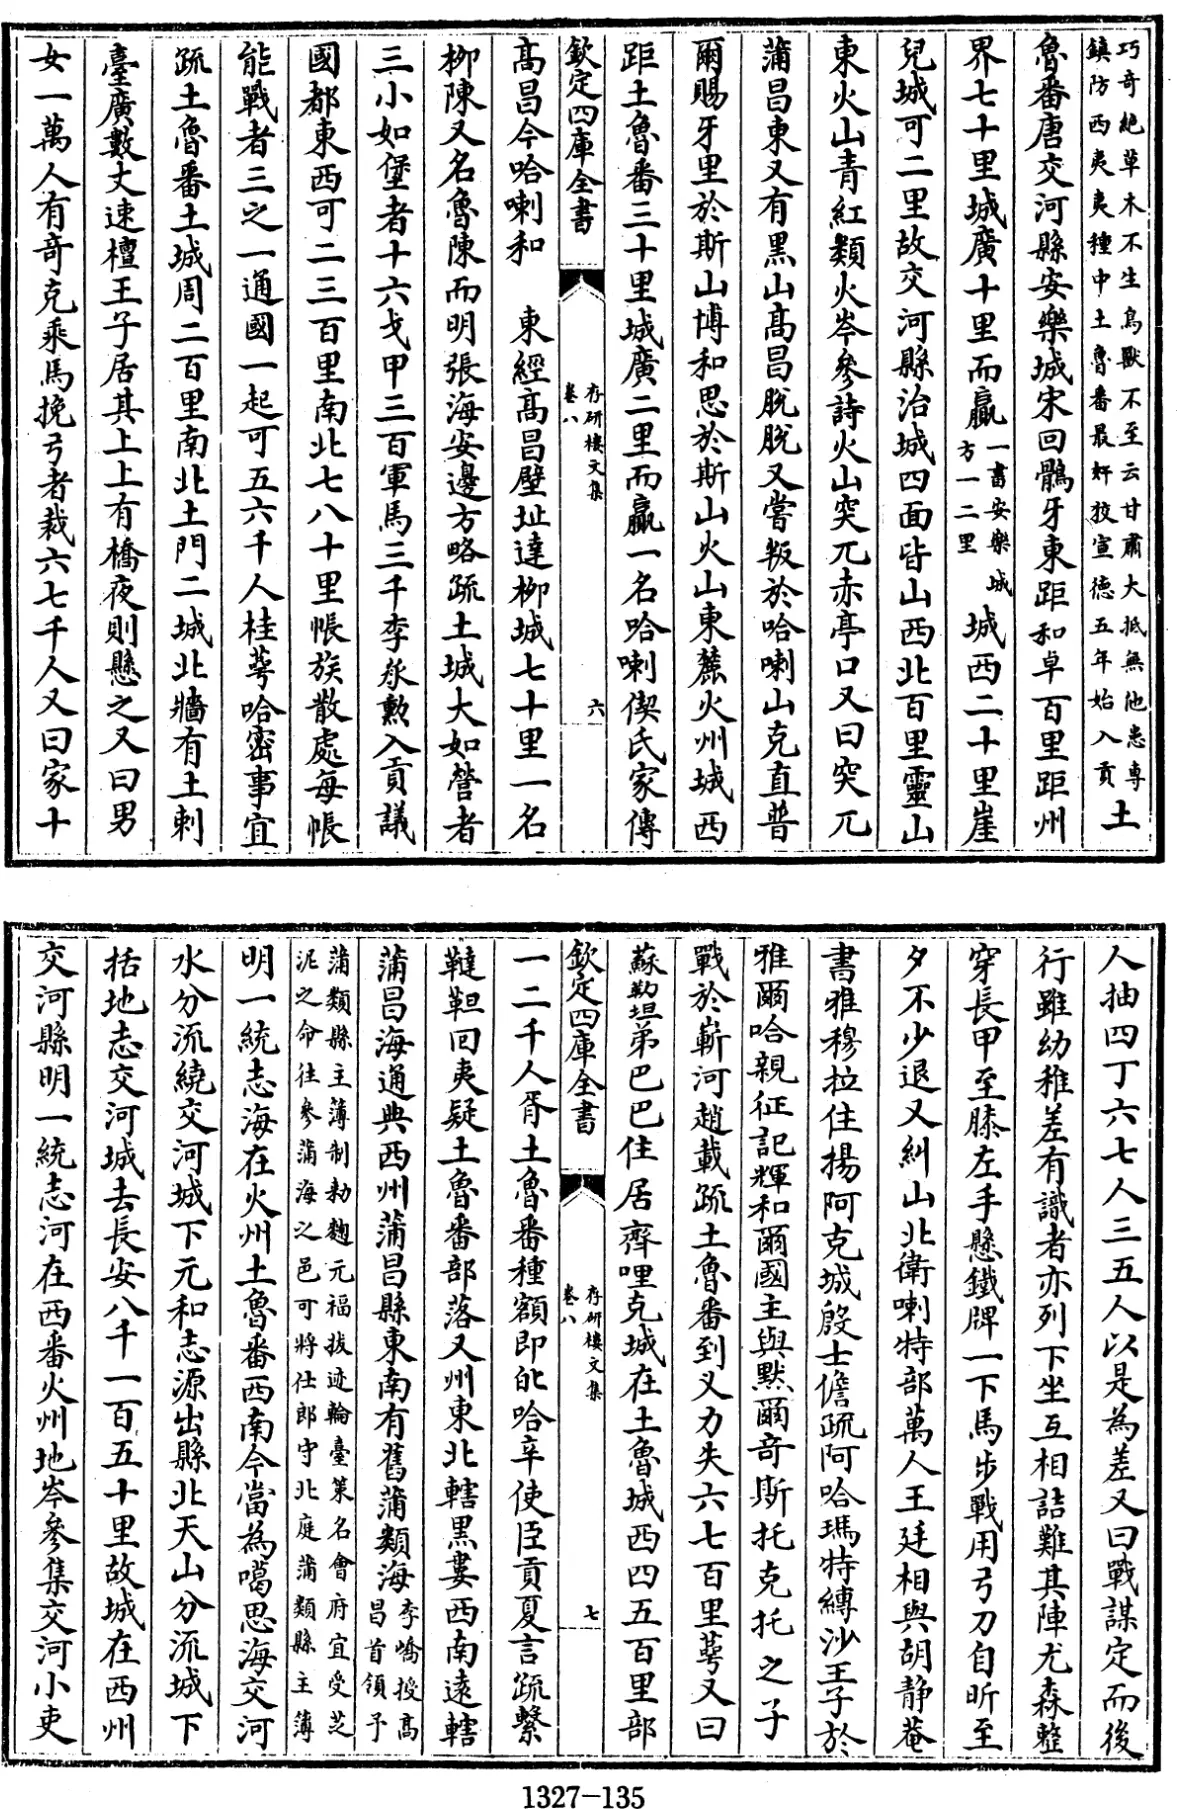 巧奇絶草木不生鳥獸不至云甘肅大抵無他患專
鎮防西夷夷種中土魯番最奸狡宣德五年始入貢
土
魯番唐交河縣安樂城宋回鶻牙東距和卓百里距州
界七十里城廣十里而贏
一書安樂城
方一二里
城西二十里崖
兒城可二里故交河縣治城四面皆山西北百里靈山
東火山青紅類火岑參詩火山突兀赤亭口又曰突兀
蒲昌東又有黑山高昌脫脫又嘗叛於哈喇山克直普
爾賜牙里於斯山博和思於斯山火山東麓火州城西
距土魯番三十里城廣二里而贏一名哈喇偰氏家傳
欽定四庫全書
存研樓文集
卷八
六
高昌今哈喇和
東經高昌壁址達柳城七十里一名
柳陳又名魯陳而明張海安邊方略疏土城大如營者
三小如堡者十六戈甲三百軍馬三千李承勲入貢議
國都東西可二三百里南北七八十里帳族散處每帳
能戰者三之一通國一起可五六千人桂萼哈密事宜
疏土魯番土城周二百里南北土門二城北牆有土剌
臺廣數丈速檀王子居其上上有橋夜則懸之又曰男
女一萬人有奇克乘馬挽弓者裁六七千人又曰家十
人抽四丁六七人三五人以是為差又曰戰謀定而後
行雖幼稚差有識者亦列下坐互相詰難其陣尤森整
穿長甲至膝左手懸鐵牌一下馬步戰用弓刀自昕至
夕不少退又糾山北衛喇特部萬人王廷相與胡靜菴
書雅穆拉住揚阿克城殷士儋疏阿哈瑪特縛沙王子於
雅爾哈親征記輝和爾國主與默爾奇斯托克托之子
戰於嶄河趙載疏土魯番到乂力失六七百里萼又曰
蘇勒坦弟巴巴住居齊哩克城在土魯城西四五百里部
欽定四庫全書
存研樓文集
卷八
七
一二千人胥土魯番種額即吪哈辛使臣貢夏言疏繫
韃靼回夷疑土魯番部落又州東北轄黑婁西南遠轄
蒲昌海通典西州蒲昌縣東南有舊蒲類海
李嶠授高
昌首領予
蒲類縣主薄制勑麴元福拔迹輪臺策名會府宜受芝
泥之命往參蒲海之邑可將仕郎守北庭蒲類縣主薄
明一統志海在火州土魯番西南今當為噶思海交河
水分流繞交河城下元和志源出縣北天山分流城下
括地志交河城去長安八千一百五十里故城在西州
交河縣明一統志河在西番火州地岑參集交河小吏
1327-135